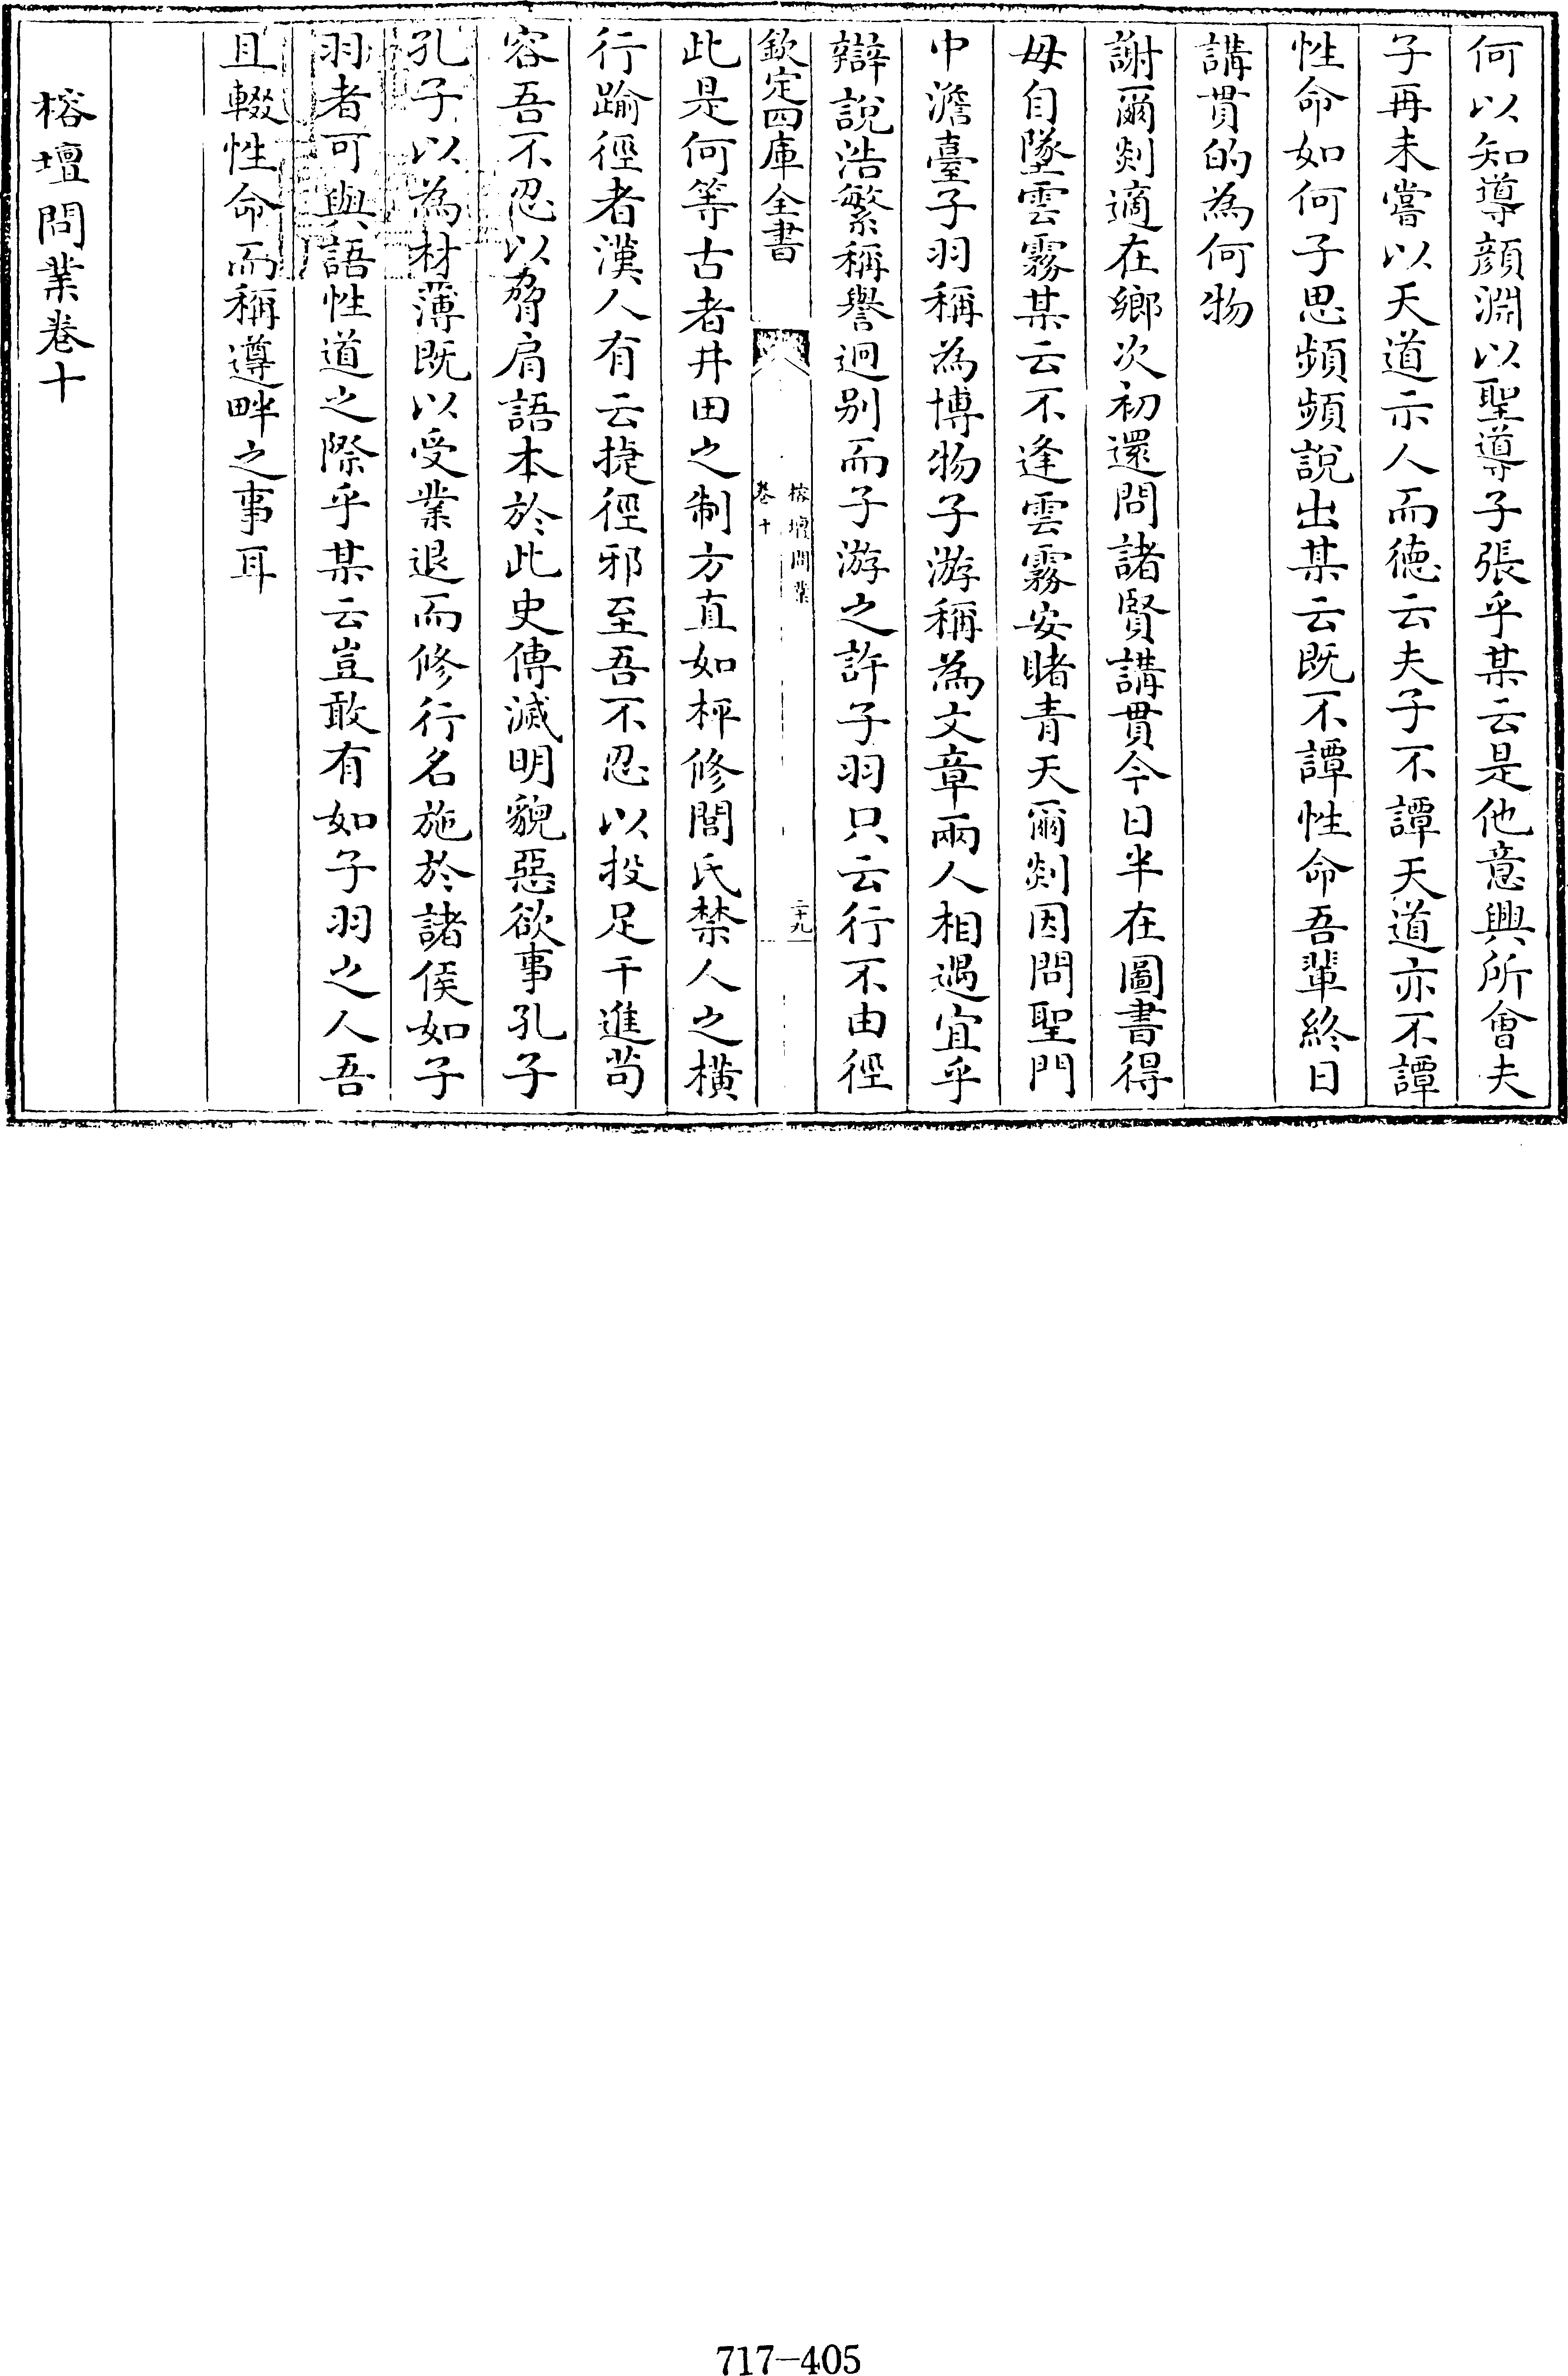 何以知導顏淵以聖導子張乎某云是他意興所會夫
子再未嘗以天道示人而德云夫子不譚天道亦不譚
性命如何子思頻頻說出某云既不譚性命吾輩終日
講貫的為何物
謝爾剡適在鄉次初還問諸賢講貫今日半在圖書得
毋自墜雲霧某云不逢雲霧安睹青天爾剡因問聖門
中澹臺子羽稱為博物子游稱為文章兩人相遇宜乎
辯說浩繁稱譽迥别而子游之許子羽只云行不由徑
欽定四庫全書
榕壇問業
卷十
二十九
此是何等古者井田之制方直如枰修閭氏禁人之橫
行踰徑者漢人有云捷徑邪至吾不忍以投足干進苟
容吾不忍以脅肩語本於此史傳滅明貌惡欲事孔子
孔子以為材薄既以受業退而修行名施於諸侯如子
羽者可與語性道之際乎某云豈敢有如子羽之人吾
且輟性命而稱遵畔之事耳
榕壇問業卷十
717-405